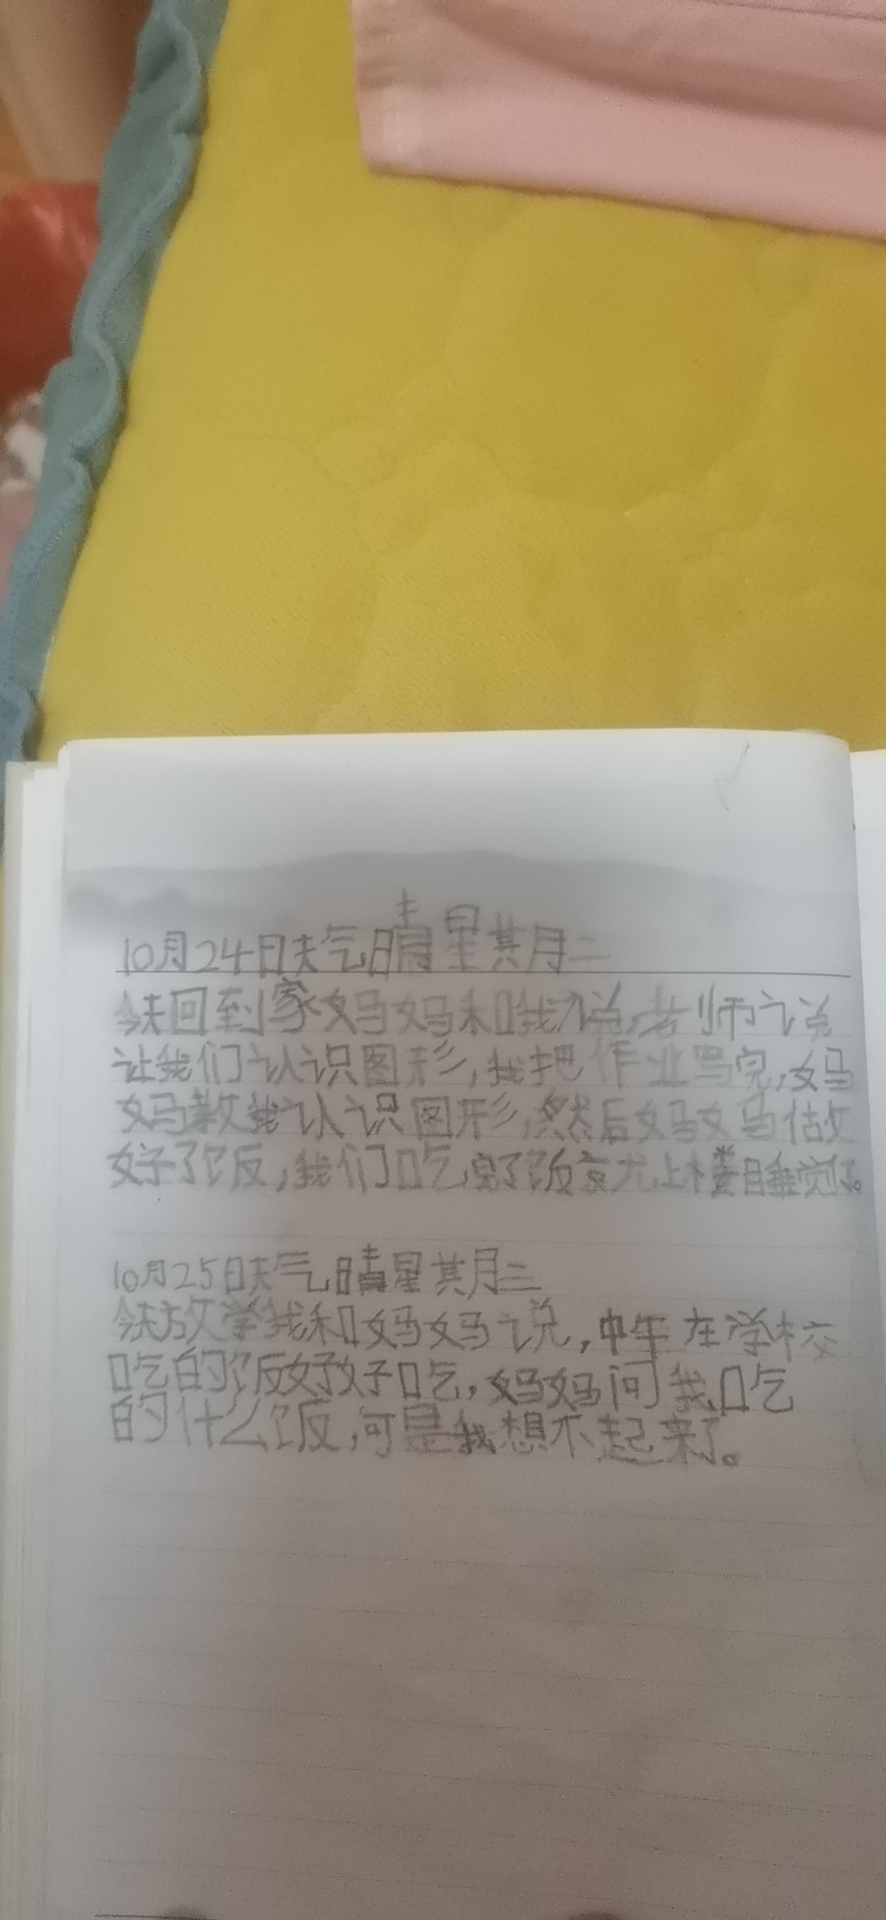 10月24日天气晴星其月二
今天回到家妈妈和我说,老师说
让我们认识图形,我把作业写完,妈
妈教我认识图形,然后妈妈做
好了饭,我们吃完了饭就上楼睡觉了。
10月25日天气晴星其月三
今天放学我和妈妈说,中午在学校
吃的饭好好吃,妈妈问我吃
的什么饭,可是我想不起来了。